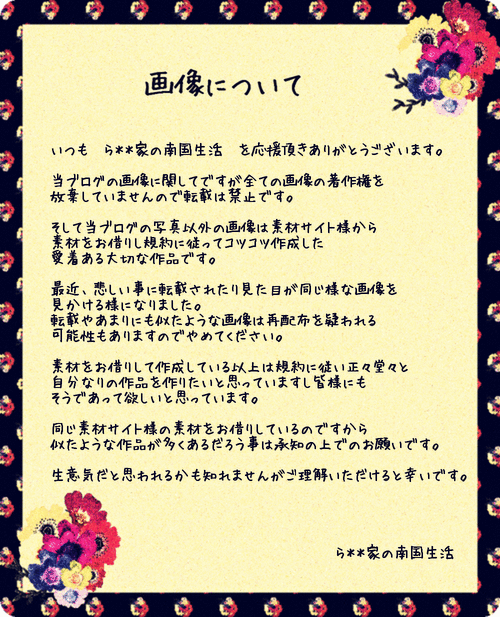 画像について
いつも　ら**家の南国生活　を応援頂きありがとうございます。
当ブログの画像に関してですが全ての画像の著作権を
放棄していませんので転載は禁止です。
そして当ブログの写真以外の画像は素材サイト様から
素材をお借りし規約に従ってコツコツ作成した
愛着ある大切な作品です。
最近、悲しい事に転載されたり見た目が同じ様な画像を
見かける様になりました。
転載やあまりにも似たような画像は再配布を疑われる
可能性もありますのでやめてください。
素材をお借りして作成している以上は規約に従い正々堂々と
自分なりの作品を作りたいと思っていますし皆様にも
そうであって欲しいと思っています。
同じ素材サイト様の素材をお借りしているのですから
似たような作品が多くあるだろう事は承知の上でのお願いです。
生意気だと思われるかも知れませんがご理解いただけると幸いです。
ら**家の南国生活